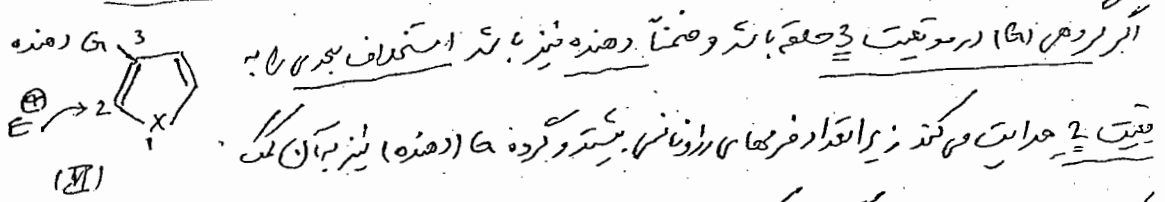 اگر گروهی (G) در موقعیت 3 حلقه باشد و ضمناً دهنده نیز باشد استخلاف بعدی را به
قعیت 2 هدایت می‌کند زیرا تعداد فرمهای رزونانسی بیشتر و گروه G (دهنده) نیز به آن کمک
دهنده G 3
E⊕ 2 X
1
(VI)